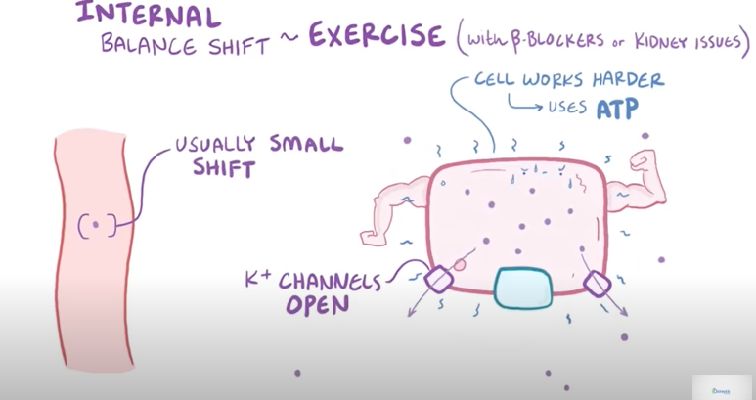 INTERNAL
BALANCE SHIFT ~ EXERCISE (with β-BLOCKERS or KIDNEY ISSUES)
CELL WORKS HARDER
→ USES ATP
USUALLY SMALL
SHIFT
(•)
K+ CHANNELS
OPEN